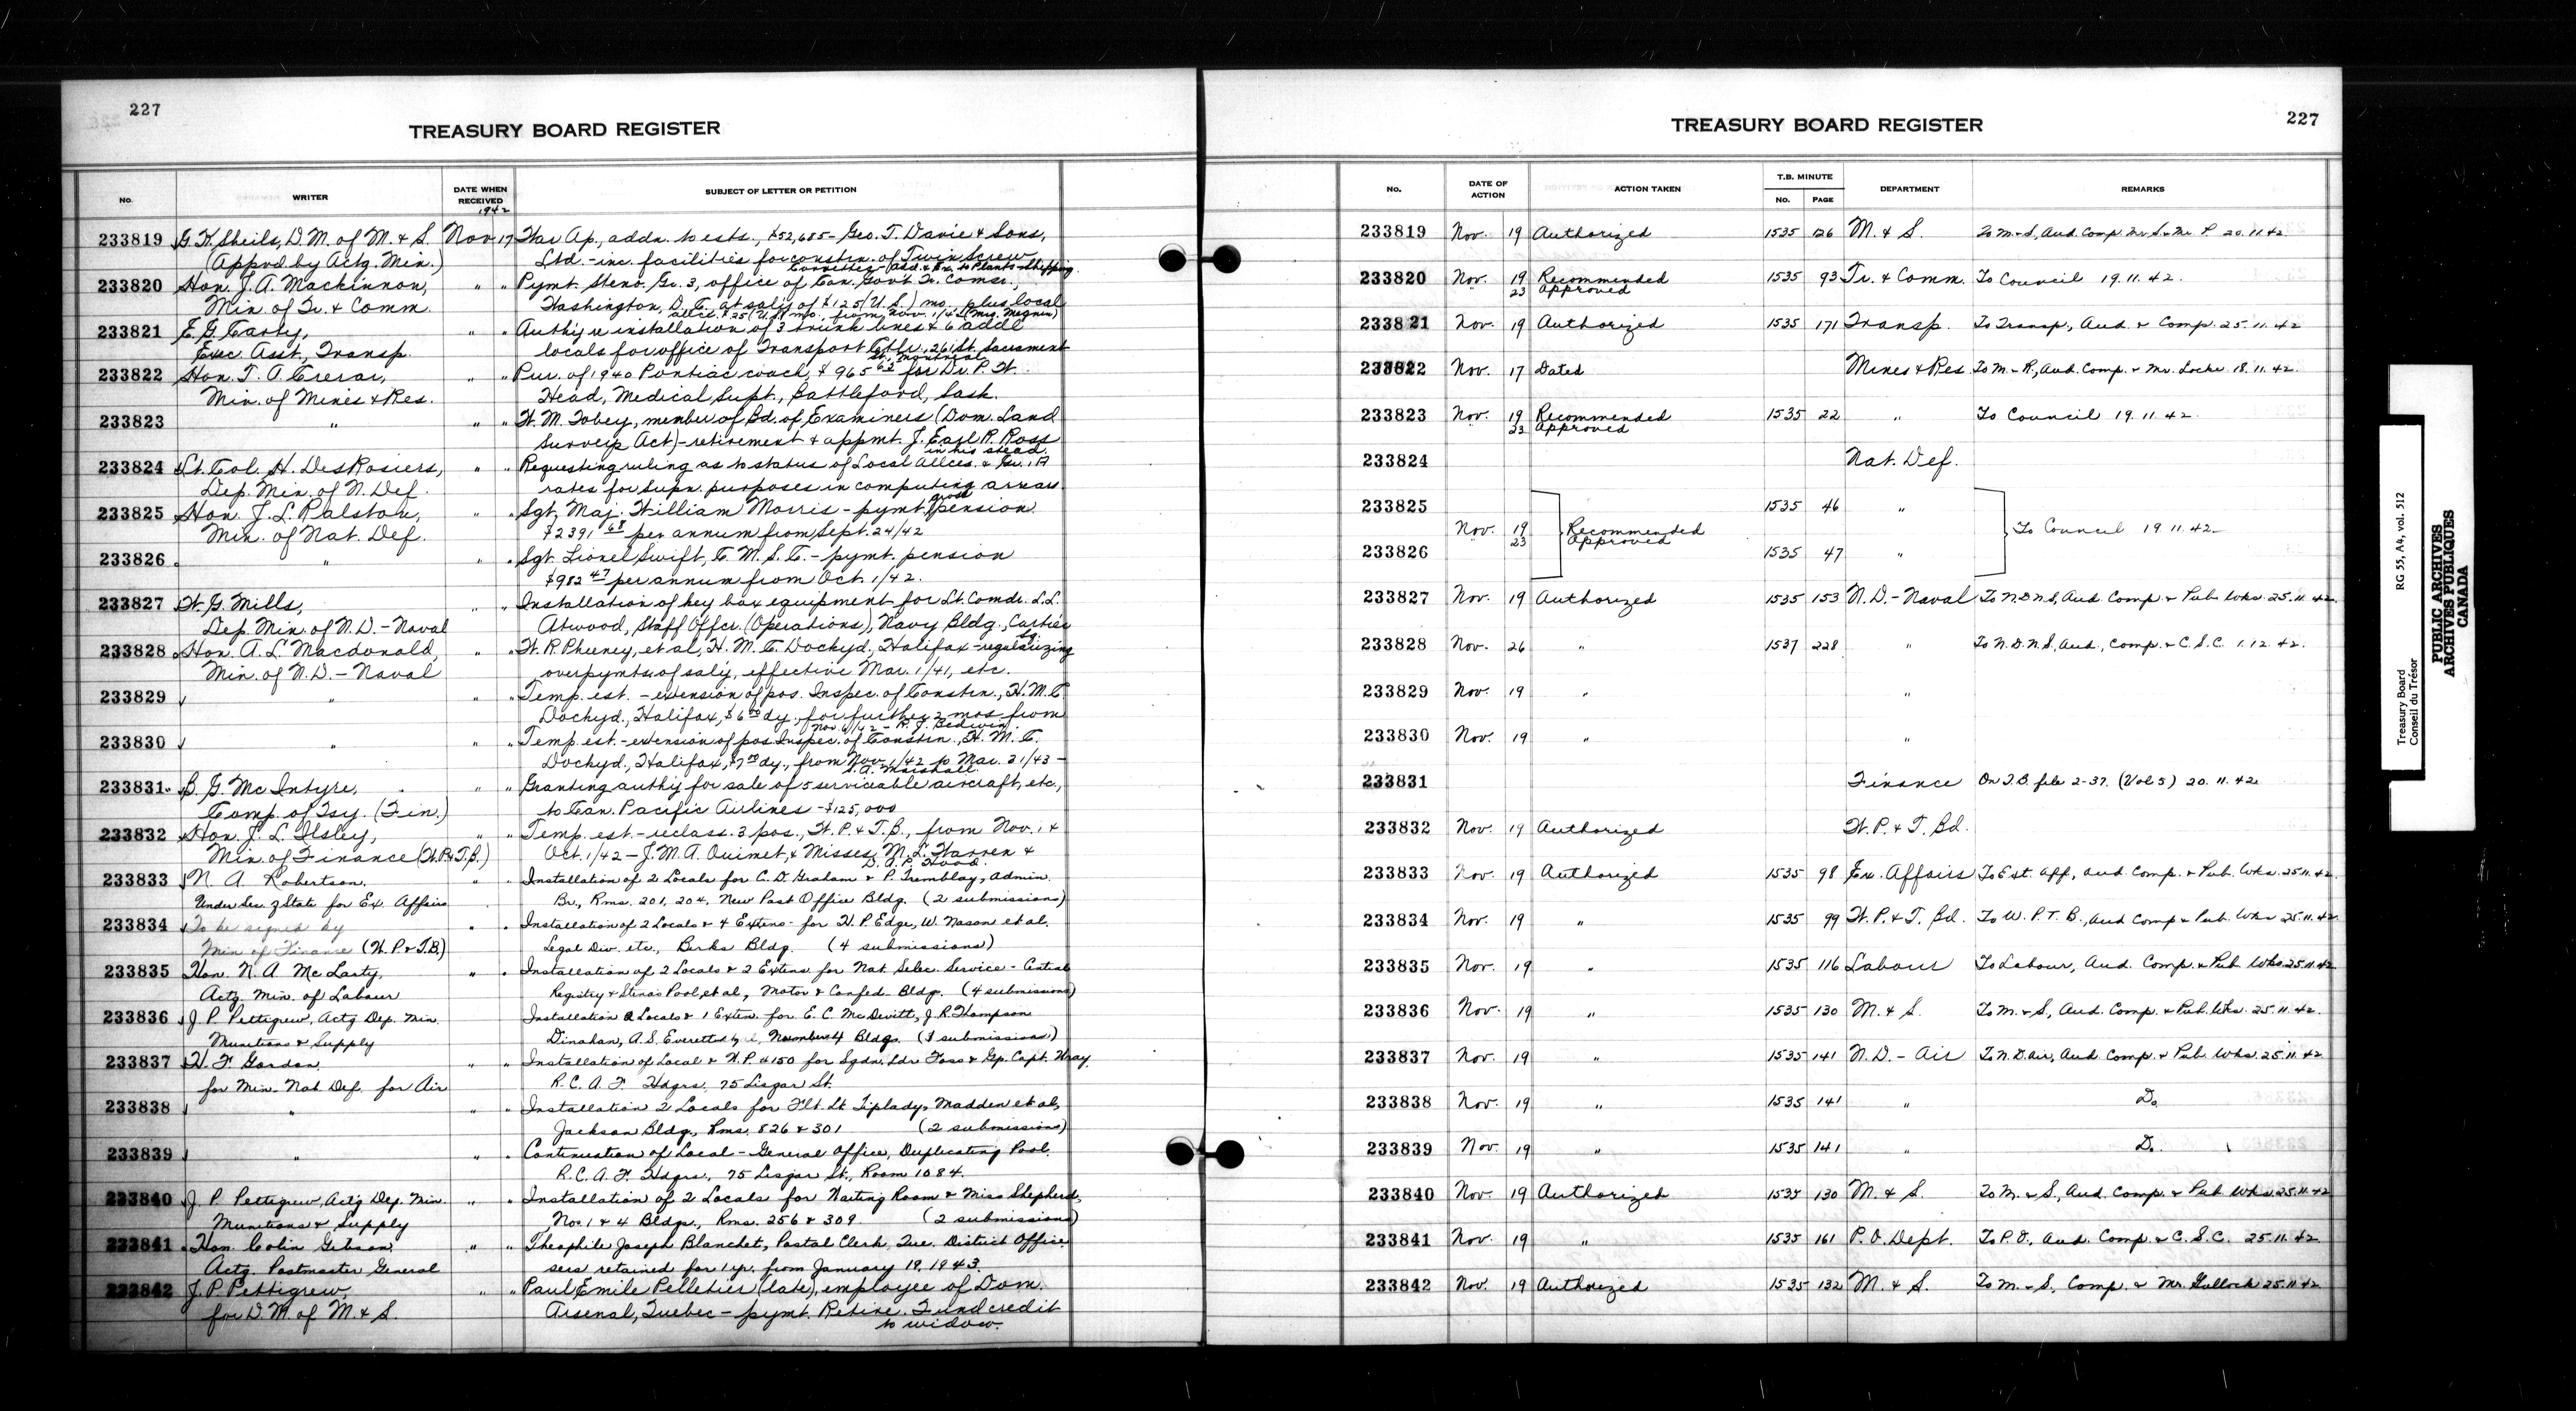 227
TREASURY BOARD REGISTER
No.
WRITER
DATE WHEN RECEIVED
1942
SUBJECT OF LETTER OR PETITION
233819 G. K. Sheils, D. M. of M. & S. Nov. 17 War Ap., addn. to ests., $52,685 - Geo. T. Davie & Sons,
(Appvd by Actg. Min.) Ltd. - inc. facilities for constrn. of Twin Screw
Corvettes - Add. & Ex. to Plants - Shipping.
233820 Hon. J. A. Mackinnon, " " Pymt. Steno. Gr. 3, office of Can. Gov't Tr. Comsr.,
Min. of Tr. & Comm. Washington, D. C. at saly of $125 (U.S.) mo., plus local
allce. $25 (U.S.) mo., from Nov. 1/42 (Miss Megnin)
233821 E. G. Carty, " " Authy re installation of 3 trunk lines & 6 addl
Exec. Asst., Transp. locals for office of Transport Ctlr., 261 St. Sacrament
St., Montreal
233822 Hon. T. A. Crerar, " " Pur. of 1940 Pontiac coach, $965 62 for Dr. P. W.
Min. of Mines & Res. Head, Medical Supt., Battleford, Sask.
233823 " " " W. M. Tobey, member of Bd. of Examiners (Dom. Land
Surveys Act) - retirement & appmt. J. Earl R. Ross
in his stead.
233824 Lt. Col. H. DesRosiers, " " Requesting ruling as to status of Local Allces. & Gr. 1A
Dep. Min. of N. Def. rates for Supn. purposes in computing arrears
233825 Hon. J. L. Ralston, " " Sgt. Maj. William Morris - pymt. gross pension
Min. of Nat. Def. $2391 68 per annum from Sept. 24/42
233826 " " " Sgt. Lionel Swift, C. M. S. C. - pymt. pension
$982 47 per annum from Oct. 1/42.
233827 W. G. Mills, " " Installation of key box equipment for Lt. Comdr. L.L.
Dep. Min. of N. D. - Naval Atwood, Staff Offcr. (Operations), Navy Bldg., Cartier
Sq.
233828 Hon. A. L. Macdonald, " " W. R. Phinney, et al, H. M. C. Dockyd., Halifax - regularizing
Min. of N. D. - Naval overpymts. of saly, effective Mar. 1/41, etc.
233829 " " Temp. est. - extension of pos. Inspec. of Constrn., H. M. C.
Dockyd., Halifax, $6 00 dy. for further 2 mos from
Nov. 6/42 - R. J. Bedwin
233830 " " " Temp. est. - extension of pos. Inspec. of Constrn., H. M. C.
Dockyd., Halifax, $7 00 dy., from Nov. 1/42 to Mar. 31/43 -
S. A. Marshall.
233831 B. G. McIntyre, " " Granting authy for sale of 5 serviceable aircraft, etc.,
Comp. of Tsy. (Fin.) to Can. Pacific Airlines - $125,000
233832 Hon. J. L. Ilsley, " " Temp. est. - reclass. 3 pos., W. P. & T. B., from Nov. 1 &
Min. of Finance (W.P.&T.B.) Oct. 1/42 - J. M. A. Ouimet, & Misses M. L. Warren &
D. A. P. Wood.
233833 N. A. Robertson, " " Installation of 2 Locals for C. D. Graham & P. Tremblay, Admin.
Under Sec. of State for Ex. Affairs Br., Rms. 201, 204, New Post Office Bldg. (2 submissions)
233834 To be signed by " " Installation of 2 Locals & 4 Extens. for W. P. Edge, W. Nason et al.
Min of Finance (W. P. & T.B.) Legal Div. etc., Birks Bldg. (4 submissions)
233835 Hon. N. A. McLarty, " " Installation of 2 Locals & 2 Extens. for Nat. Selec. Service - Central
Actg. Min. of Labour Registry & Steno's Pool, et al, Motor & Confed. Bldg. (4 submissions)
233836 J. P. Pettigrew, Actg Dep. Min. Installation 2 Locals & 1 Exten. for E. C. McDevitt, J. R. Thompson
Munitions & Supply Dinahan, A. S. Everett Number 4 Bldg. (3 submissions)
233837 H. F. Gordon, " " Installation of Local & W.P. 4150 for Sqdn. Ldr. Foss & Gp. Capt. Wray,
for Min. Nat Def. for Air R. C. A. F. Hdqrs. 75 Lisgar St.
233838 " " " Installation 2 Locals for Flt. Lt. Tiplady, Madden et al,
Jackson Bldg., Rms. 826 & 301 (2 submissions)
233839 " " " Continuation of Local - General Office, Duplicating Pool,
R.C.A.F. Hdqrs., 75 Lisgar St., Room 1084.
233840 J. P. Pettigrew, Actg Dep. Min. " " Installation of 2 Locals for Waiting Room & Miss Shepherd,
Munitions & Supply Nos. 1 & 4 Bldgs., Rms. 256 & 309. (2 submissions)
233841 Hon. Colin Gibson, " " Theophile Joseph Blanchet, Postal Clerk, Que. District Office
Actg. Postmaster General sers retained for 1 yr. from January 19, 1943.
233842 J. P. Pettigrew, " " Paul Emile Pelletier (late), employee of Dom.
for D. M. of M. & S. Arsenal, Quebec - pymt. Retire. Fund credit
to widow.
TREASURY BOARD REGISTER
227
No.
DATE OF ACTION
ACTION TAKEN
T.B. MINUTE
No.
PAGE
DEPARTMENT
REMARKS
233819 Nov. 19 Authorized 1535 126 M. & S. To M. & S., Aud. Comp. Mr. S. & Mr. P. 20.11.42
233820 Nov. 19 Recommended 1535 93 Tr. & Comm. To Council 19.11.42.
23 Approved
233821 Nov. 19 Authorized 1535 171 Transp. To Transp., Aud. & Comp. 25.11.42
233822 Nov. 17 Dated Mines & Res To M. & R., Aud. Comp. & Mr. Locke 18.11.42.
233823 Nov. 19 Recommended 1535 22 " To Council 19.11.42.
23 Approved
233824 Nat. Def.
233825 1535 46 "
Nov. 19 Recommended To Council 19.11.42
23 Approved
233826 1535 47 "
233827 Nov. 19 Authorized 1535 153 N.D. - Naval To N.D.N.S., Aud. Comp. & Pub. Wks. 25.11.42.
233828 Nov. 26 " 1537 228 " To N.D.N.S., Aud., Comp. & C.S.C. 1.12.42.
233829 Nov. 19 " "
233830 Nov. 19 " "
233831 Finance On T.B. file 2-37. (Vol 5) 20.11.42
233832 Nov. 19 Authorized W. P. & T. Bd.
233833 Nov. 19 Authorized 1535 98 Ex. Affairs To Ext. Aff., Aud. Comp. & Pub. Wks. 25.11.42.
233834 Nov. 19 " 1535 99 W. P. & T. Bd. To W. P. T. B., Aud Comp & Pub. Wks 25.11.42
233835 Nov. 19 " 1535 116 Labour To Labour, Aud. Comp. & Pub. Wks. 25.11.42
233836 Nov. 19 " 1535 130 M. & S. To M. & S., Aud. Comp. & Pub. Wks. 25.11.42.
233837 Nov. 19 " 1535 141 N.D. - Air To N.D. Air, Aud. Comp. & Pub. Wks. 25.11.42
233838 Nov. 19 " 1535 141 " Do.
233839 Nov. 19 " 1535 141 " Do.
233840 Nov. 19 Authorized 1535 130 M. & S. To M. & S., Aud Comp. & Pub Wks. 25.11.42
233841 Nov. 19 " 1535 161 P.O. Dept. To P.O., Aud. Comp. & C.S.C. 25.11.42
233842 Nov. 19 Authorized 1535 132 M. & S. To M. & S., Comp. & Mr. Gullock 25.11.42
Treasury Board
Conseil du Trésor
RG 55, A4, vol. 512
PUBLIC ARCHIVES
ARCHIVES PUBLIQUES
CANADA